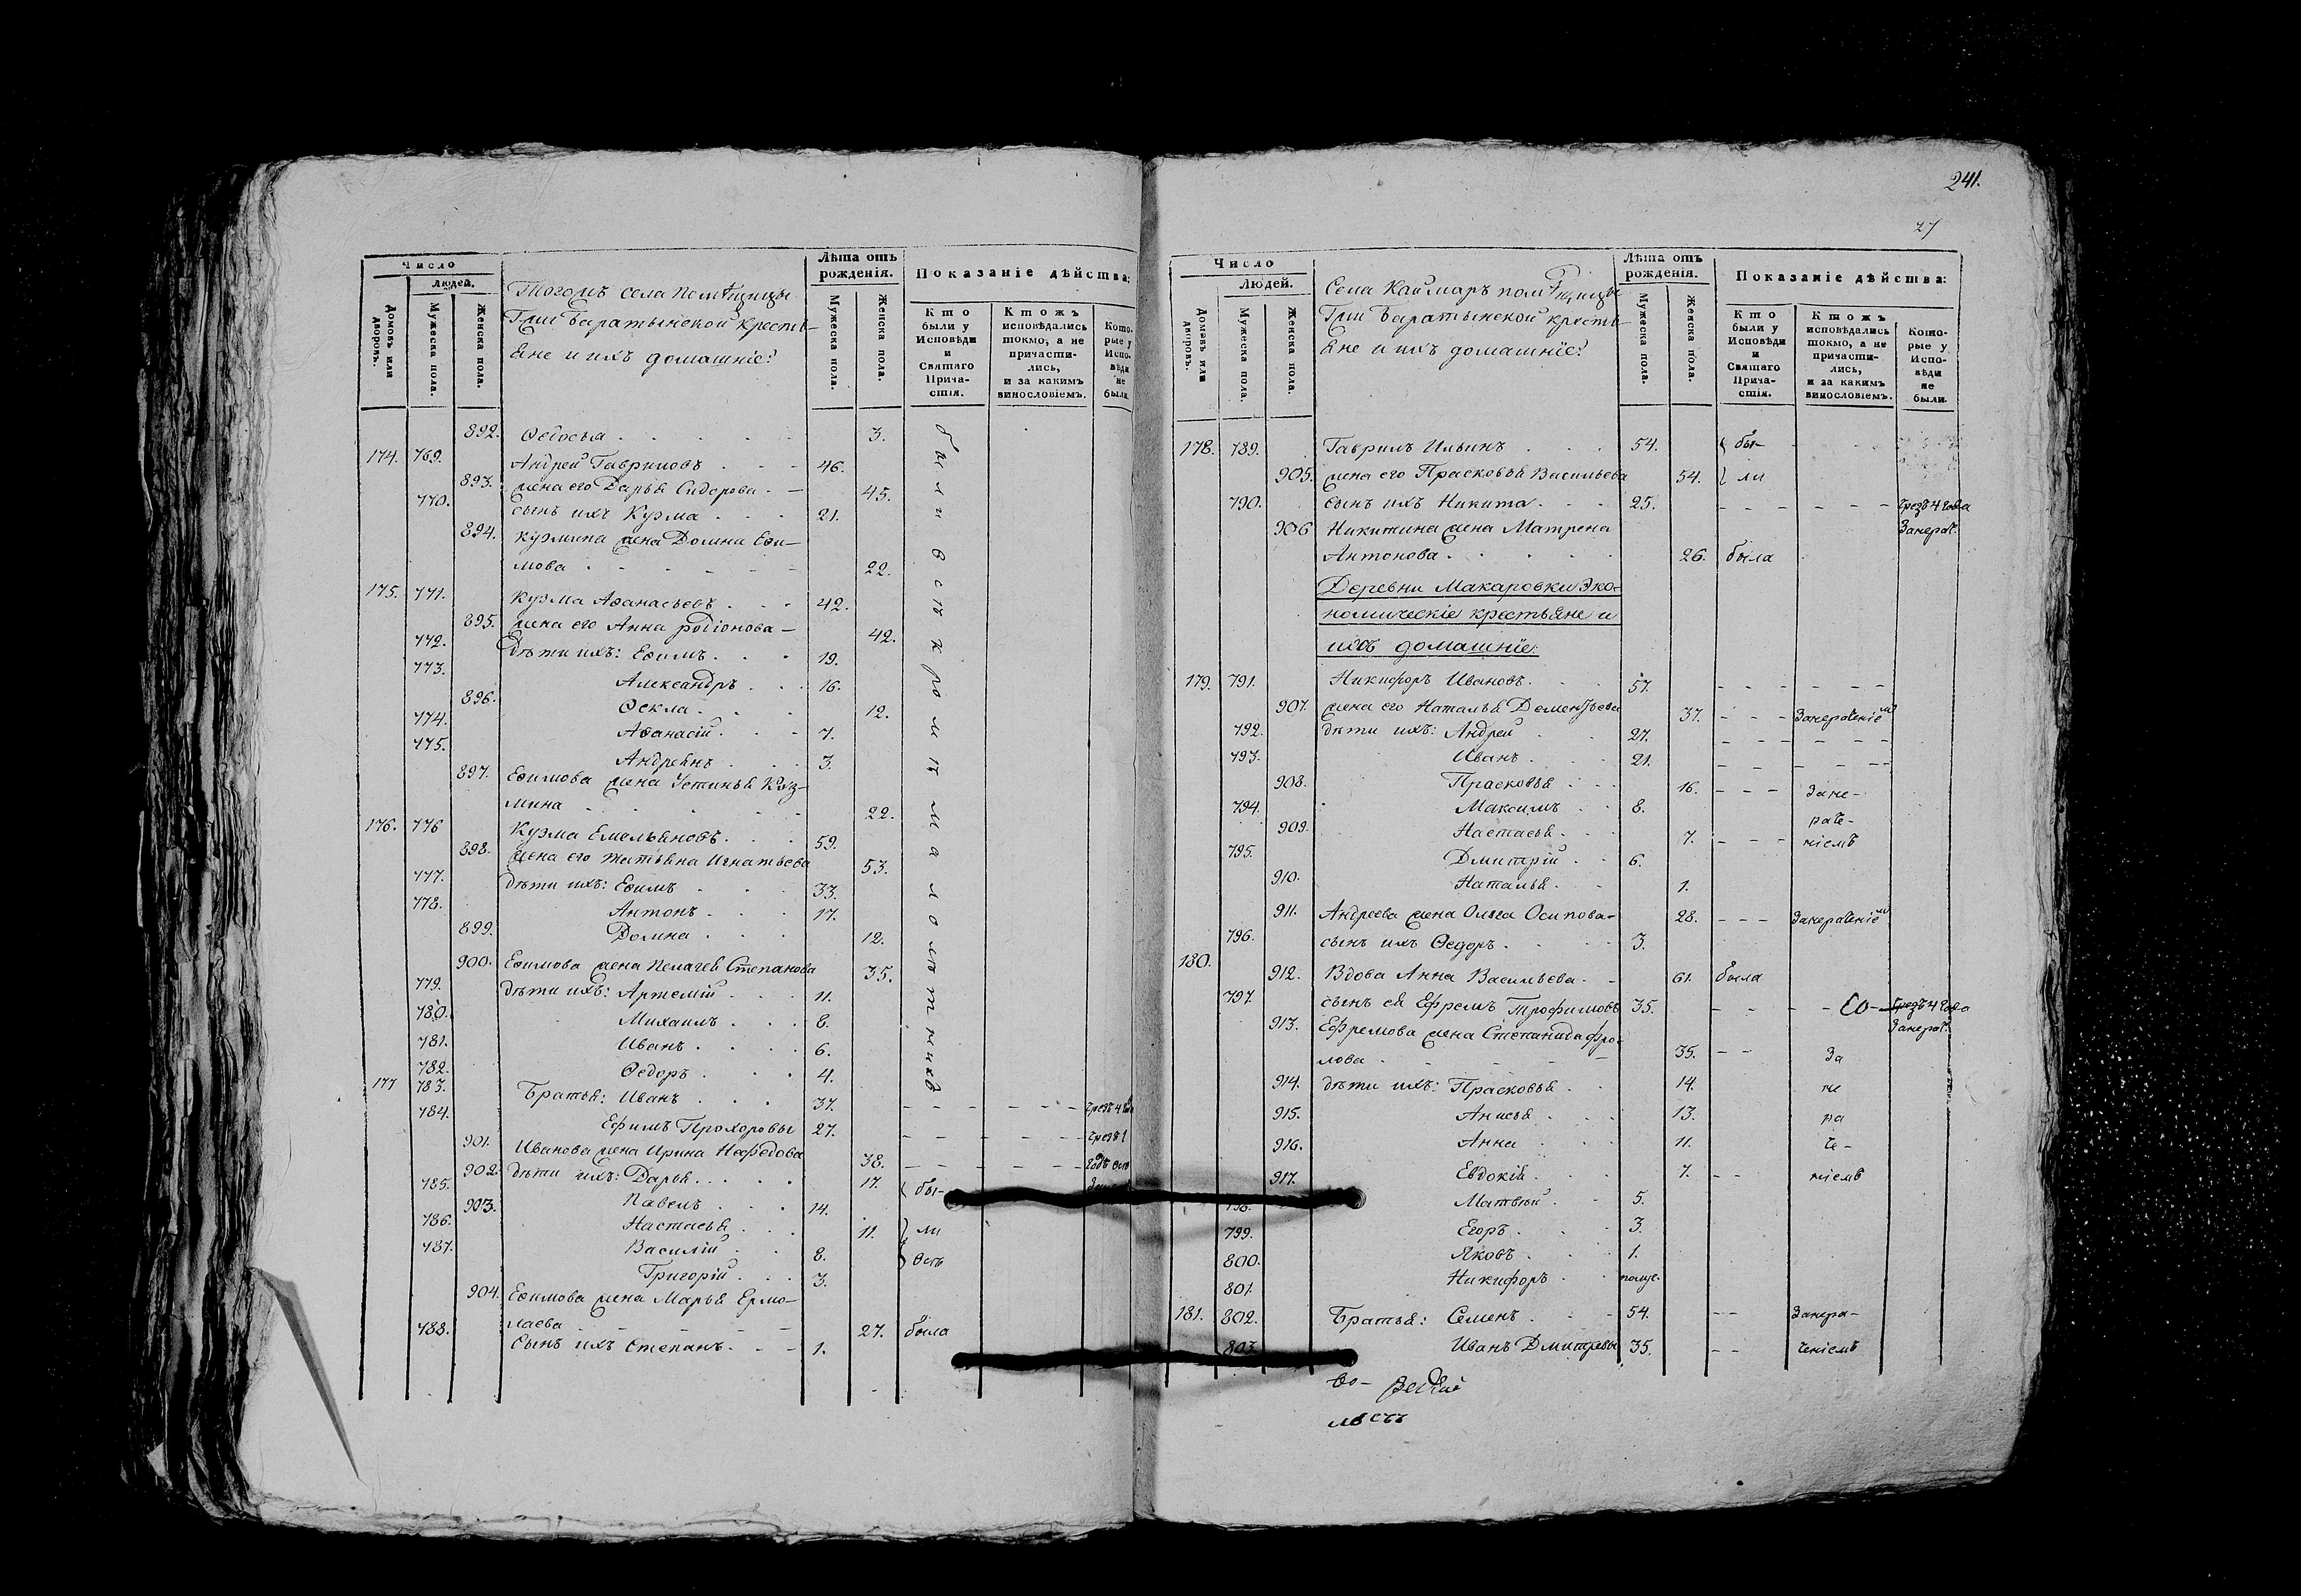 241.
27
Число
Людей.
Домовъ или дворовъ.
Мужеска пола.
Женска пола.
Тогожъ села помѣщицы
Гжи Баратынской кресть-
яне и ихъ домашніе:
Лѣта отъ рожденія.
Мужеска пола.
Женска пола.
Показаніе дѣйства:
Кто были у Исповѣди и Святаго Прича-стія.
Ктожъ исповѣдались токмо, а не причасти-лись, и за какимъ винословіемъ.
Кото-рые у Испо-вѣди не были
892. Ѳедосья 3.
174. 769. Андрей Гавриловъ 46.
893. жена его Дарья Сидорова 45.
770. сынъ ихъ Кузма 21.
894. Кузмина жена Домна Еѳи-
мова 22.
175. 771. Кузма Аѳанасьевъ 42.
895. жена его Анна Родіонова 42.
772. дѣти ихъ: Еѳимъ 19.
773. Александръ 16.
896. Ѳекла 12.
774. Аѳанасій 7.
775. Андреянъ 3.
897. Еѳимова жена Устинья Куз-
мина 22.
176. 776 Кузма Емельяновъ 59.
898. жена его Татьяна Игнатьева 53.
777. дѣти ихъ: Еѳимъ 33.
778. Антонъ 17.
899. Домна 12.
900. Еѳимова жена Пелагея Степанова 35.
779. дѣти ихъ: Артемій 11.
780. Михаилъ 8.
781. Иванъ 6.
782. Ѳедоръ 4.
были всѣ кромѣ малолѣтнихъ
177 783. Братья: Иванъ 37.
784. Ефимъ Прохоровы 27.
901. Иванова жена Ирина Нефедова 38.
902. дѣти ихъ: Дарья 17. бы-
785. Павелъ 14.
903. Настасья 11. ли
786. Василій 8. всѣ
787. Григорій 3.
904. Еѳимова жена Марья Ермо-
лаева 27. была
788. Сынъ ихъ Степанъ 1.
Число
Людей.
Домовъ или дворовъ.
Мужеска пола.
Женска пола.
Села Каймаръ помѣщицы
Гжи Баратынской кресть-
яне и ихъ домашніе:
Лѣта отъ рожденія.
Мужеска пола.
Женска пола.
Показаніе дѣйства:
Кто были у Исповѣди и Святаго Прича-стія.
Ктожъ исповѣдались токмо, а не причасти-лись, и за какимъ винословіемъ.
Кото-рые у Испо-вѣди не были.
178. 789. Гаврилъ Ильинъ 54. бы-
905. жена его Прасковья Васильева 54. ли
790. сынъ ихъ Никита 25. чрезъ 4 года
906 Никитина жена Матрена Занерач.
Антонова 26. была
Деревни Макаровки Эко-
номическіе крестьяне и
ихъ домашніе:
179. 791. Никифоръ Ивановъ 57.
907. жена его Наталья Дементьева 37. Занераченіемъ
792. дѣти ихъ: Андрей 27.
793. Иванъ 21.
908. Прасковья 16. Зане-
794. Максимъ 8. раче-
909. Настасья 7. ніемъ
795. Дмитрій 6.
910. Наталья 1.
911. Андреева жена Ольга Осипова 28. Занераченіемъ
796. сынъ ихъ Ѳедоръ 3.
180. 912. Вдова Анна Васильева 61. была
797. сынъ ея Ефремъ Трофимовъ 35. чрезъ 4 года
913. Ефремова жена Степанида Фро- Занерач.
лова 35. За
914. дѣти ихъ: Прасковья 14. не
915. Анисья 13. ра
916. Анна 11. че-
917. Евдокія 7. ніемъ
798. Матвѣй 5.
799. Егоръ 3.
800. Яковъ 1.
801. Никифоръ полуг.
181. 802. Братья: Семенъ 54. Занера-
803. Иванъ Дмитревы 35. ченіемъ